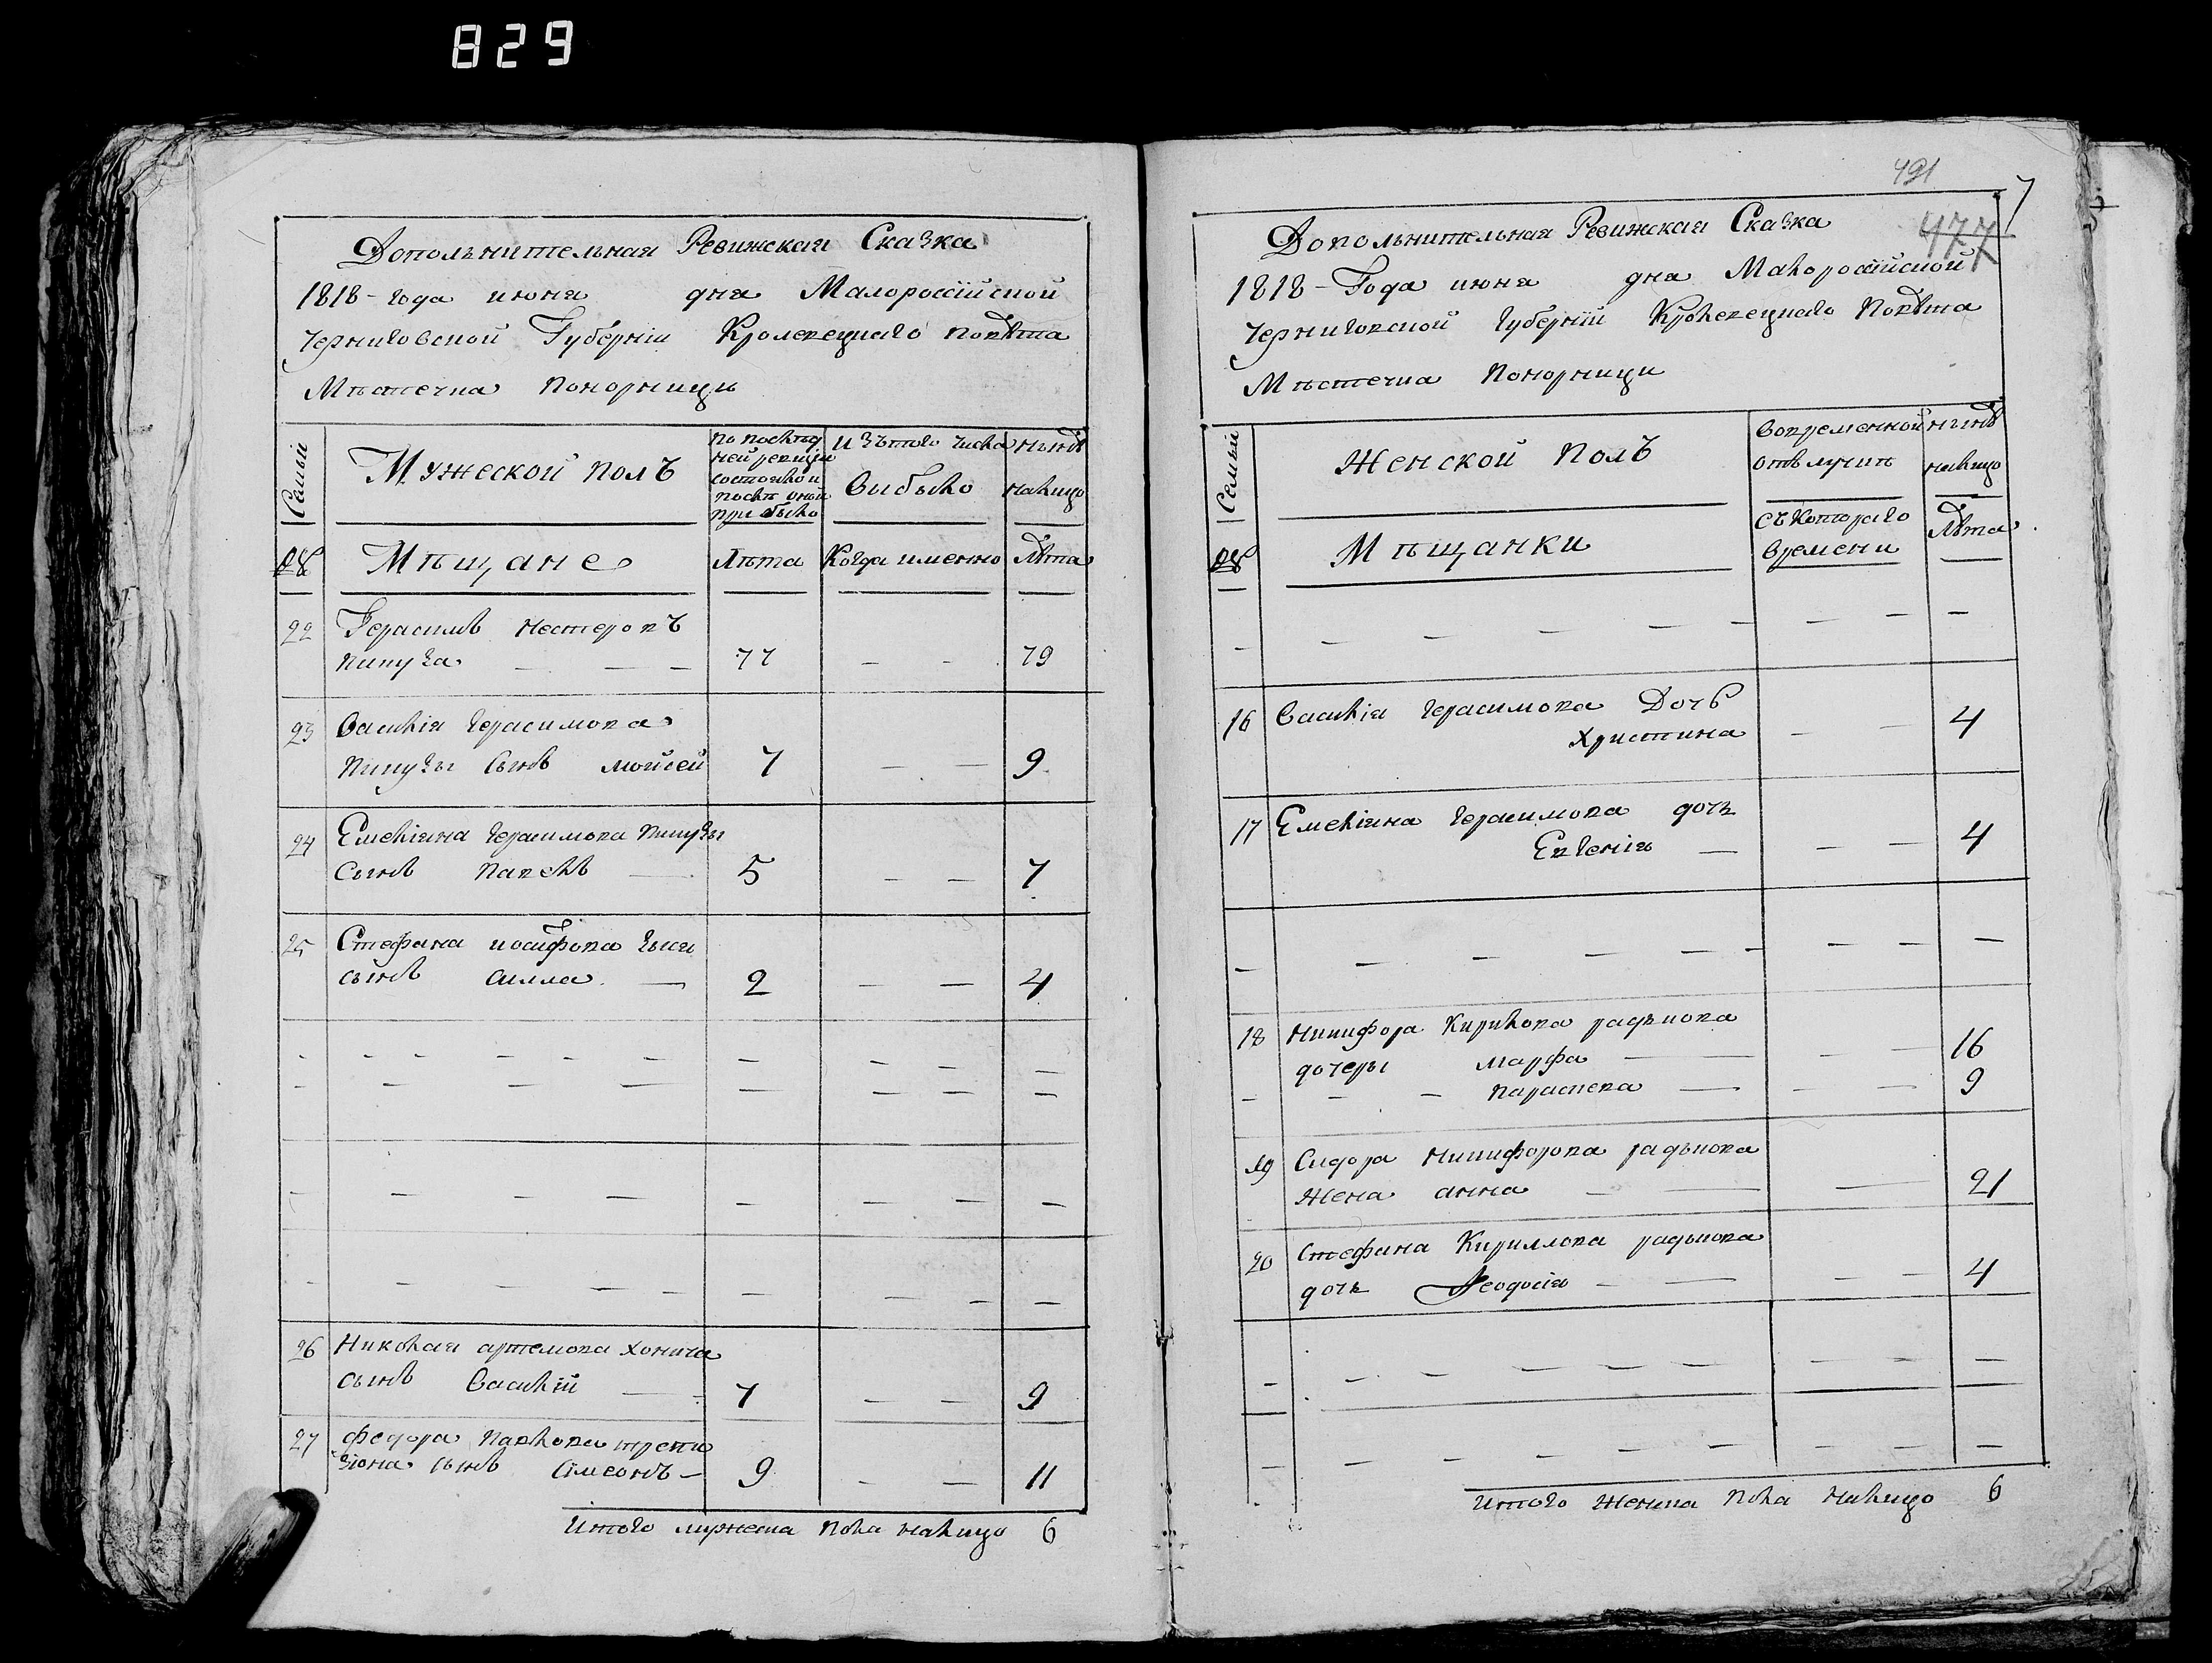 829
Дополнительная Ревижская Сказка
1818 - года июня дня Малороссійской
Черниговской Губерніи Кролевецкаго повѣта
Мѣстечка Понорници
Семьи
Мужеской полъ
по послѣд
ней ревизи
состояло и
послѣ оной
прибыло
Изътого числа
Выбыло
нынѣ
налицо
№
Мѣщане
Лѣта
Когда именно
Лѣта
22 Герасимъ Нестеровъ
77 79
23 Василія Герасимова
сынъ Мойсей 7 9
24 Емеліяна Герасимова
сынъ Павелъ 5 7
25 Стефана Иосифова
сынъ Силла 2 4
26 Николая Артемова
сынъ Василій 7 9
27 Федора Павлова
сынъ Сімеонъ 9 11
Итого мужеска пола налицо 6
491
7
477
Дополнительная Ревижская Сказка
1818 - Года июня дня Малороссійской
Черниговской Губерніи Кролевецкаго Повѣта
Мѣстечка Понорници
Семьи
Женской полъ
Вовременной
отлучкѣ
нынѣ
налицо
№
Мѣщанки
съкотораго
времени
Лѣта
16 Василія Герасимова Дочь
Христина 4
17 Емеліяна Герасимова дочь
Евгенія 4
18 Никифора Кирилова Радъкова
дочеры Марфа 16
Параскева 9
19 Сидора Никифорова Радькова
Жена Анна 21
20 Стефана Кириллова Радькова
дочь Феодосія 4
Итого Женска Пола Налицо 6